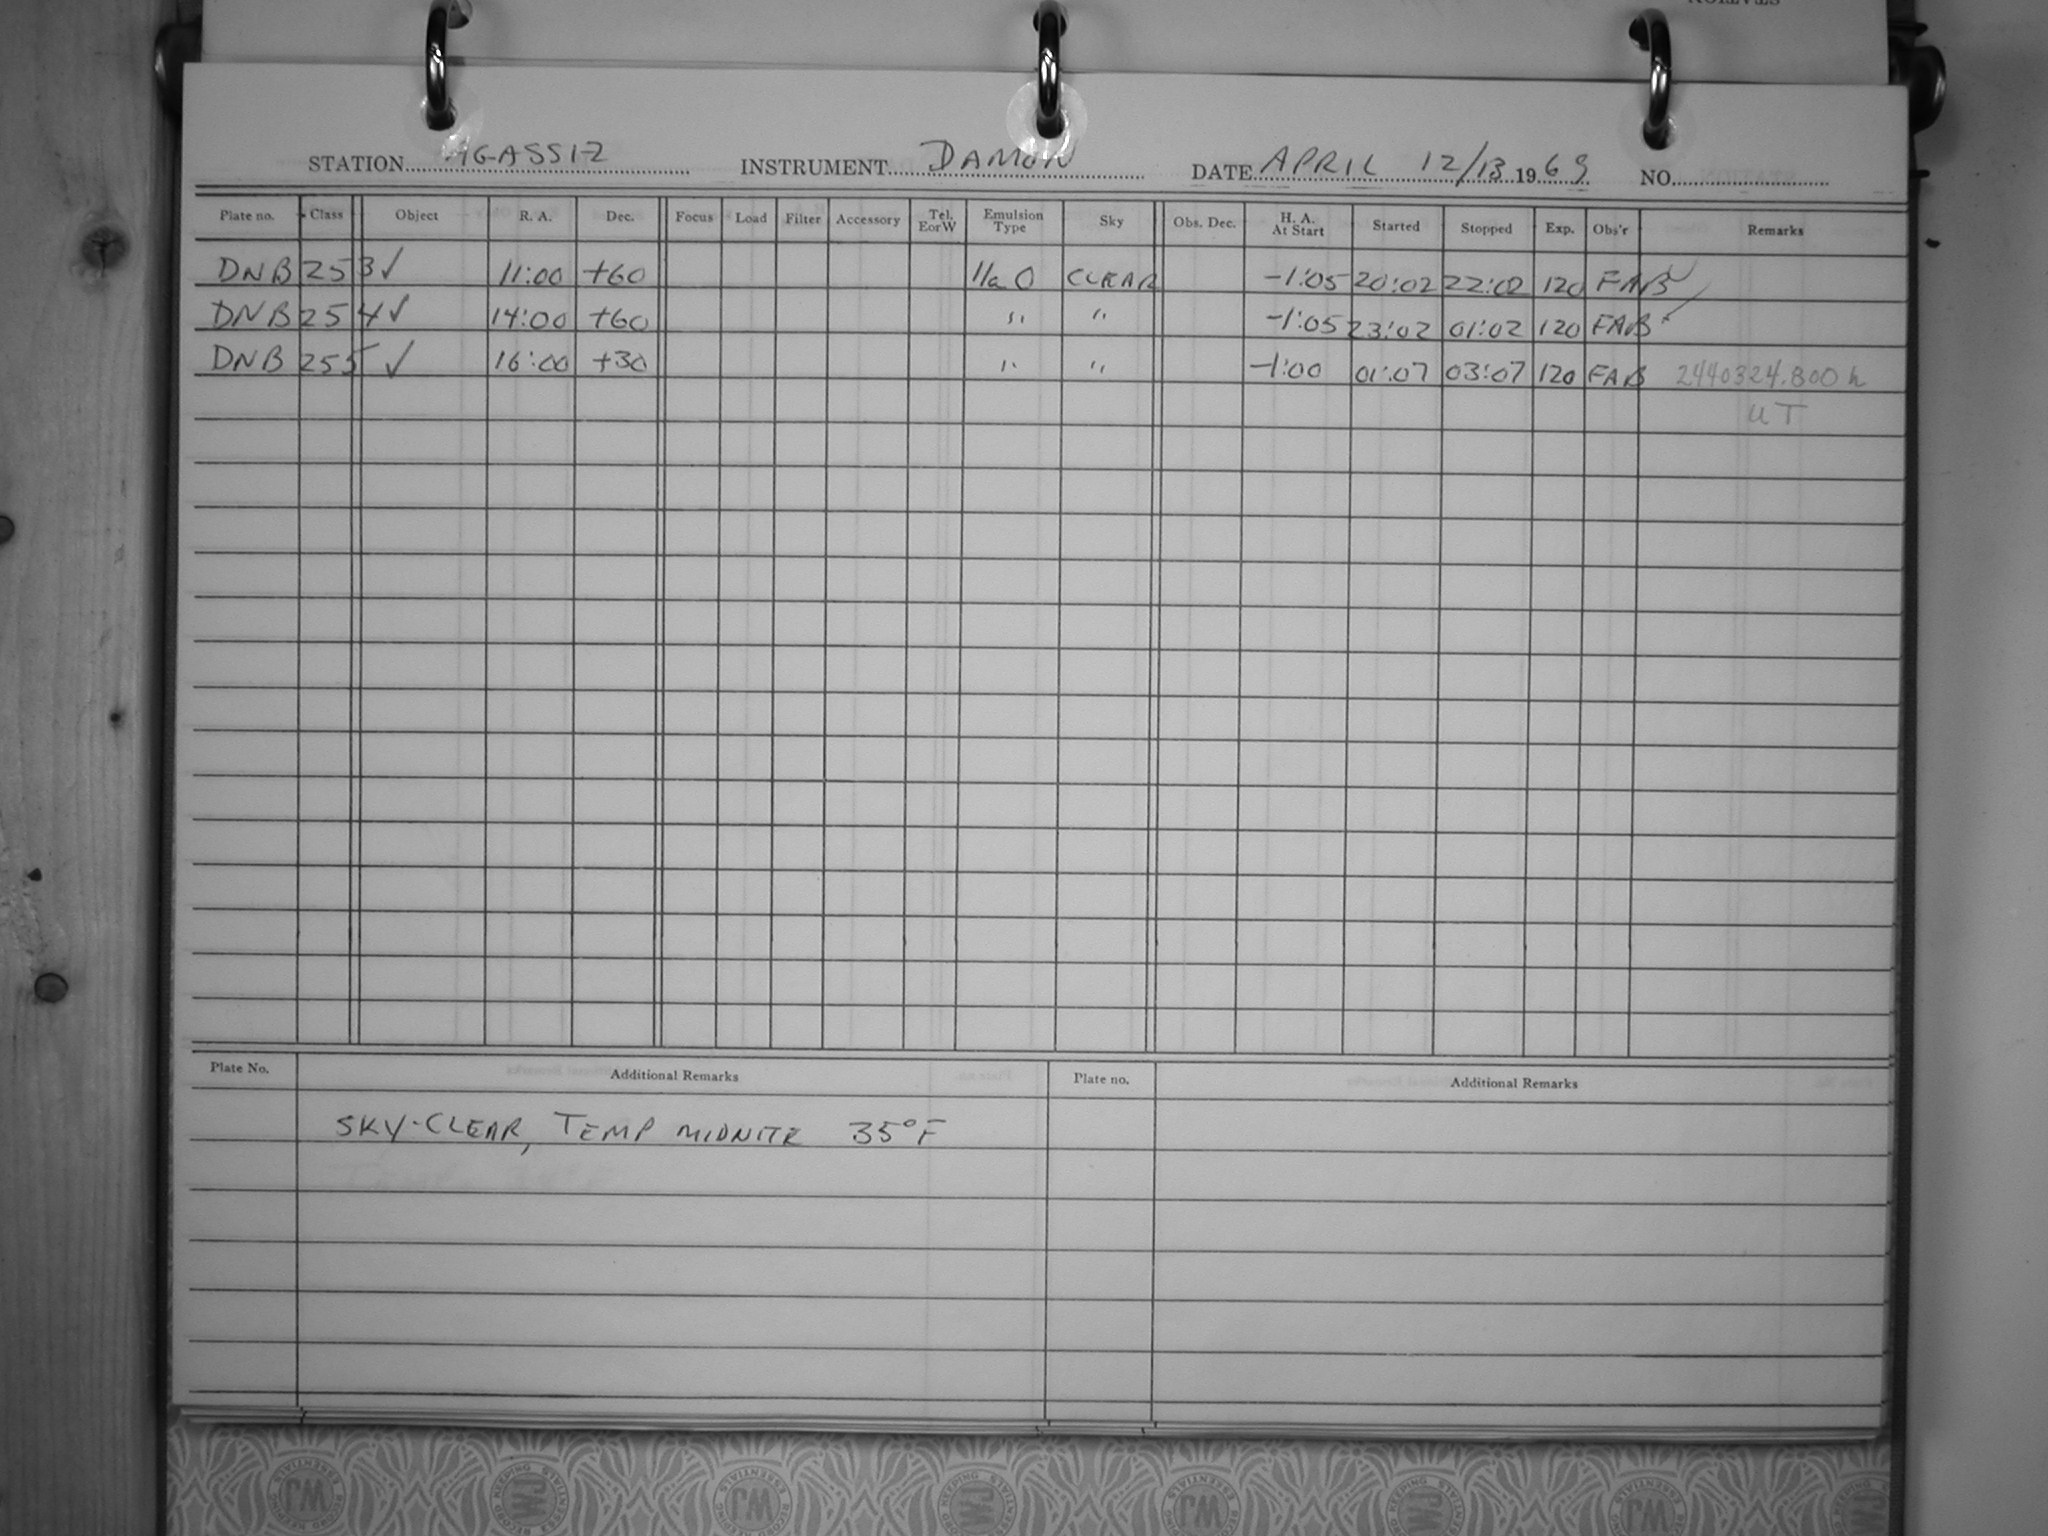 STATION AGASSIZ INSTRUMENT DAMON DATE APRIL 12/13 1969 NO.
Plate no. Class Object R. A. Dec. Focus Load Filter Accessory Tel. E or W Emulsion Type Sky Obs. Dec. H. A. At Start Started Stopped Exp. Obs'r Remarks
DNB 253 ✓ 11:00 +60 IIaO CLEAR -1:05 20:02 22:02 120 FAB ✓
DNB 254 ✓ 14:00 +60 " " -1:05 23:02 01:02 120 FAB ✓
DNB 255 ✓ 16:00 +30 " " -1:00 01:07 03:07 120 FAB 2440324.800 h
UT
Plate No. Additional Remarks Plate no. Additional Remarks
SKY-CLEAR, TEMP MIDNITE 35°F
WJ RECORD KEEPING ESSENTIALS